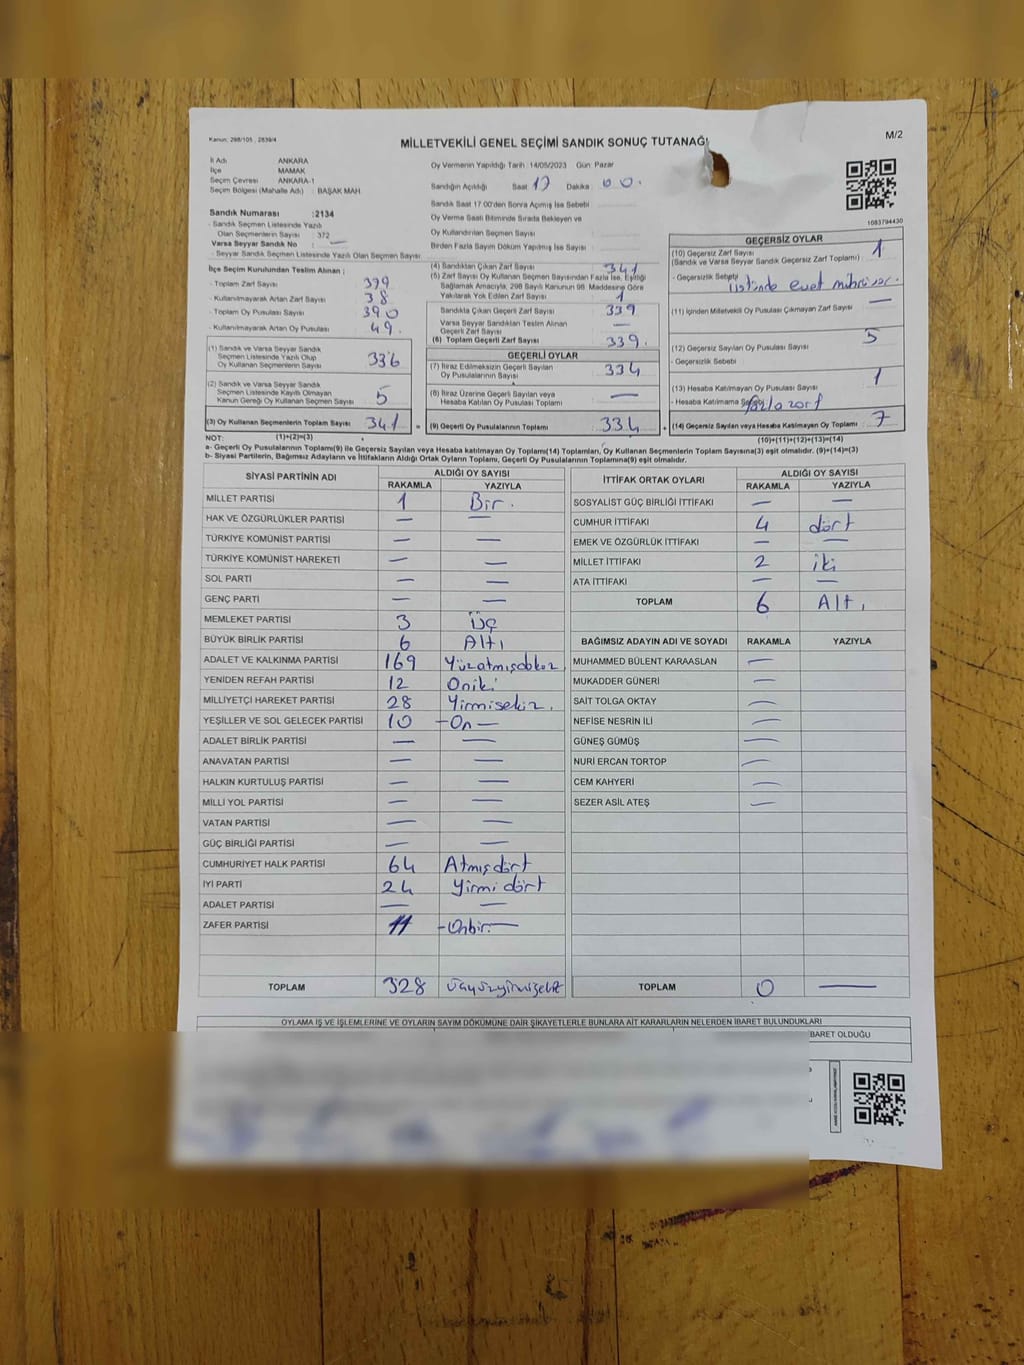 Kanun; 298/105 , 2839/4
MİLLETVEKİLİ GENEL SEÇİMİ SANDIK SONUÇ TUTANAĞI
M/2
İl Adı ANKARA
İlçe MAMAK
Seçim Çevresi ANKARA-1
Seçim Bölgesi (Mahalle Adı) : BAŞAK MAH.
Sandık Numarası :2134
- Sandık Seçmen Listesinde Yazılı
Olan Seçmenlerin Sayısı : 372
Varsa Seyyar Sandık No : —
- Seyyar Sandık Seçmen Listesinde Yazılı Olan Seçmen Sayısı
Oy Vermenin Yapıldığı Tarih : 14/05/2023 Gün: Pazar
Sandığın Açıldığı Saat 17 Dakika 00.
Sandık Saat 17.00'den Sonra Açımış İse Sebebi
Oy Verme Saati Bitiminde Sırada Bekleyen ve
Oy Kullandırılan Seçmen Sayısı
Birden Fazla Sayım Döküm Yapılmış İse Sayısı
1083794430
İlçe Seçim Kurulundan Teslim Alınan ;
- Toplam Zarf Sayısı 379
- Kullanılmayarak Artan Zarf Sayısı 38
- Toplam Oy Pusulası Sayısı 390
- Kullanılmayarak Artan Oy Pusulası 49.
(1) Sandık ve Varsa Seyyar Sandık
Seçmen Listesinde Yazılı Olup
Oy Kullanan Seçmenlerin Sayısı 336
(2) Sandık ve Varsa Seyyar Sandık
Seçmen Listesinde Kayıtlı Olmayan
Kanun Gereği Oy Kullanan Seçmen Sayısı 5
(3) Oy Kullanan Seçmenlerin Toplam Sayısı 341
(4) Sandıktan Çıkan Zarf Sayısı 341
(5) Zarf Sayısı Oy Kullanan Seçmen Sayısından Fazla İse, Eşitliği
Bağlamak Amacıyla, 298 Sayılı Kanunun 98. Maddesine Göre
Yakılarak Yok Edilen Zarf Sayısı 1
Sandıkta Çıkan Geçerli Zarf Sayısı 339
Varsa Seyyar Sandıktan Teslim Alınan
Geçerli Zarf Sayısı —
(6) Toplam Geçerli Zarf Sayısı 339.
GEÇERLİ OYLAR
(7) İtiraz Edilmeksizin Geçerli Sayılan
Oy Pusulalarının Sayısı 334
(8) İtiraz Üzerine Geçerli Sayılan veya
Hesaba Katılan Oy Pusulası Toplamı —
= (9) Geçerli Oy Pusulalarının Toplamı 334
GEÇERSİZ OYLAR
(10) Geçersiz Zarf Sayısı 1
(Sandık ve Varsa Seyyar Sandık Geçersiz Zarf Toplamı)
- Geçersizlik Sebebi üstünde evet mührü var.
(11) İçinden Milletvekili Oy Pusulası Çıkmayan Zarf Sayısı —
(12) Geçersiz Sayılan Oy Pusulası Sayısı 5
- Geçersizlik Sebebi
(13) Hesaba Katılmayan Oy Pusulası Sayısı 1
- Hesaba Katılmama Sebebi fazla zarf
+ (14) Geçersiz Sayılan veya Hesaba Katılmayan Oy Toplamı 7
NOT: (1)+(2)=(3) (10)+(11)+(12)+(13)=(14)
a- Geçerli Oy Pusulalarının Toplamı(9) ile Geçersiz Sayılan veya Hesaba katılmayan Oy Toplamı(14) Toplamları, Oy Kullanan Seçmenlerin Toplam Sayısına(3) eşit olmalıdır. (9)+(14)=(3)
b- Siyasi Partilerin, Bağımsız Adayların ve İttifakların Aldığı Ortak Oyların Toplamı, Geçerli Oy Pusulalarının Toplamına(9) eşit olmalıdır.
SİYASİ PARTİNİN ADI ALDIĞI OY SAYISI
RAKAMLA YAZIYLA
MİLLET PARTİSİ 1 Bir.
HAK VE ÖZGÜRLÜKLER PARTİSİ — —
TÜRKİYE KOMÜNİST PARTİSİ — —
TÜRKİYE KOMÜNİST HAREKETİ — —
SOL PARTİ — —
GENÇ PARTİ — —
MEMLEKET PARTİSİ 3 Üç
BÜYÜK BİRLİK PARTİSİ 6 Altı
ADALET VE KALKINMA PARTİSİ 169 Yüzatmışdokuz
YENİDEN REFAH PARTİSİ 12 Oniki
MİLLİYETÇİ HAREKET PARTİSİ 28 Yirmisekiz.
YEŞİLLER VE SOL GELECEK PARTİSİ 10 —On—
ADALET BİRLİK PARTİSİ — —
ANAVATAN PARTİSİ — —
HALKIN KURTULUŞ PARTİSİ — —
MİLLİ YOL PARTİSİ — —
VATAN PARTİSİ — —
GÜÇ BİRLİĞİ PARTİSİ — —
CUMHURİYET HALK PARTİSİ 64 Atmışdört
İYİ PARTİ 24 Yirmi dört
ADALET PARTİSİ — —
ZAFER PARTİSİ 11 —Onbir—
TOPLAM 328
İTTİFAK ORTAK OYLARI ALDIĞI OY SAYISI
RAKAMLA YAZIYLA
SOSYALİST GÜÇ BİRLİĞİ İTTİFAKI — —
CUMHUR İTTİFAKI 4 dört
EMEK VE ÖZGÜRLÜK İTTİFAKI — —
MİLLET İTTİFAKI 2 iki
ATA İTTİFAKI — —
TOPLAM 6 Altı
BAĞIMSIZ ADAYIN ADI VE SOYADI RAKAMLA YAZIYLA
MUHAMMED BÜLENT KARAASLAN —
MUKADDER GÜNERİ —
SAİT TOLGA OKTAY —
NEFİSE NESRİN İLİ —
GÜNEŞ GÜMÜŞ —
NURİ ERCAN TORTOP —
CEM KAHYERİ —
SEZER ASİL ATEŞ —
TOPLAM 0 —
OYLAMA İŞ VE İŞLEMLERİNE VE OYLARIN SAYIM DÖKÜMÜNE DAİR ŞİKAYETLERLE BUNLARA AİT KARARLARIN NELERDEN İBARET BULUNDUKLARI
BARET OLDUĞU